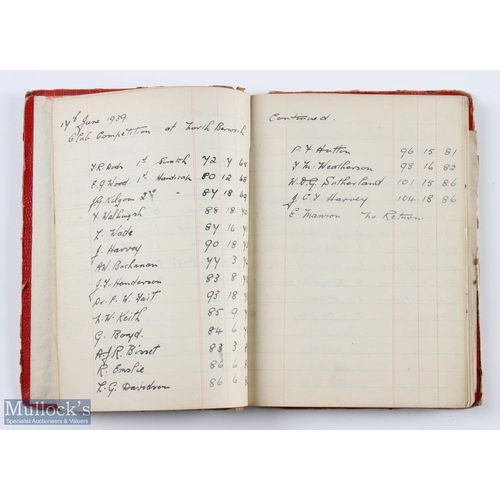 14th June 1939
Club Competition at North Berwick
1st Scratch 72 4
E.G. Wood 1st Handicap 80 12 68
J.G. Kilgour 2nd " 84 18
88 18
L. Wade 84 16
J. Harvey 90 18
A.W. Buchanan 77 3
J.Y. Henderson 83 8
Dr. P. W. Tait 93 18
N.W. Keith 85 9
G. Boyd. 84 6
A.J.R. Bisset 83 3
R. Emslie 86 6
L.G. Davidson 86 6
Continued.
P.Y. Hutton 96 15 81
J.M. Weatherson 98 16 82
W.D.G. Sutherland 101 15 86
J.C.Y. Harvey 104 18 86
E. Manson No Return
Mullock's
Specialist Auctioneers & Valuers